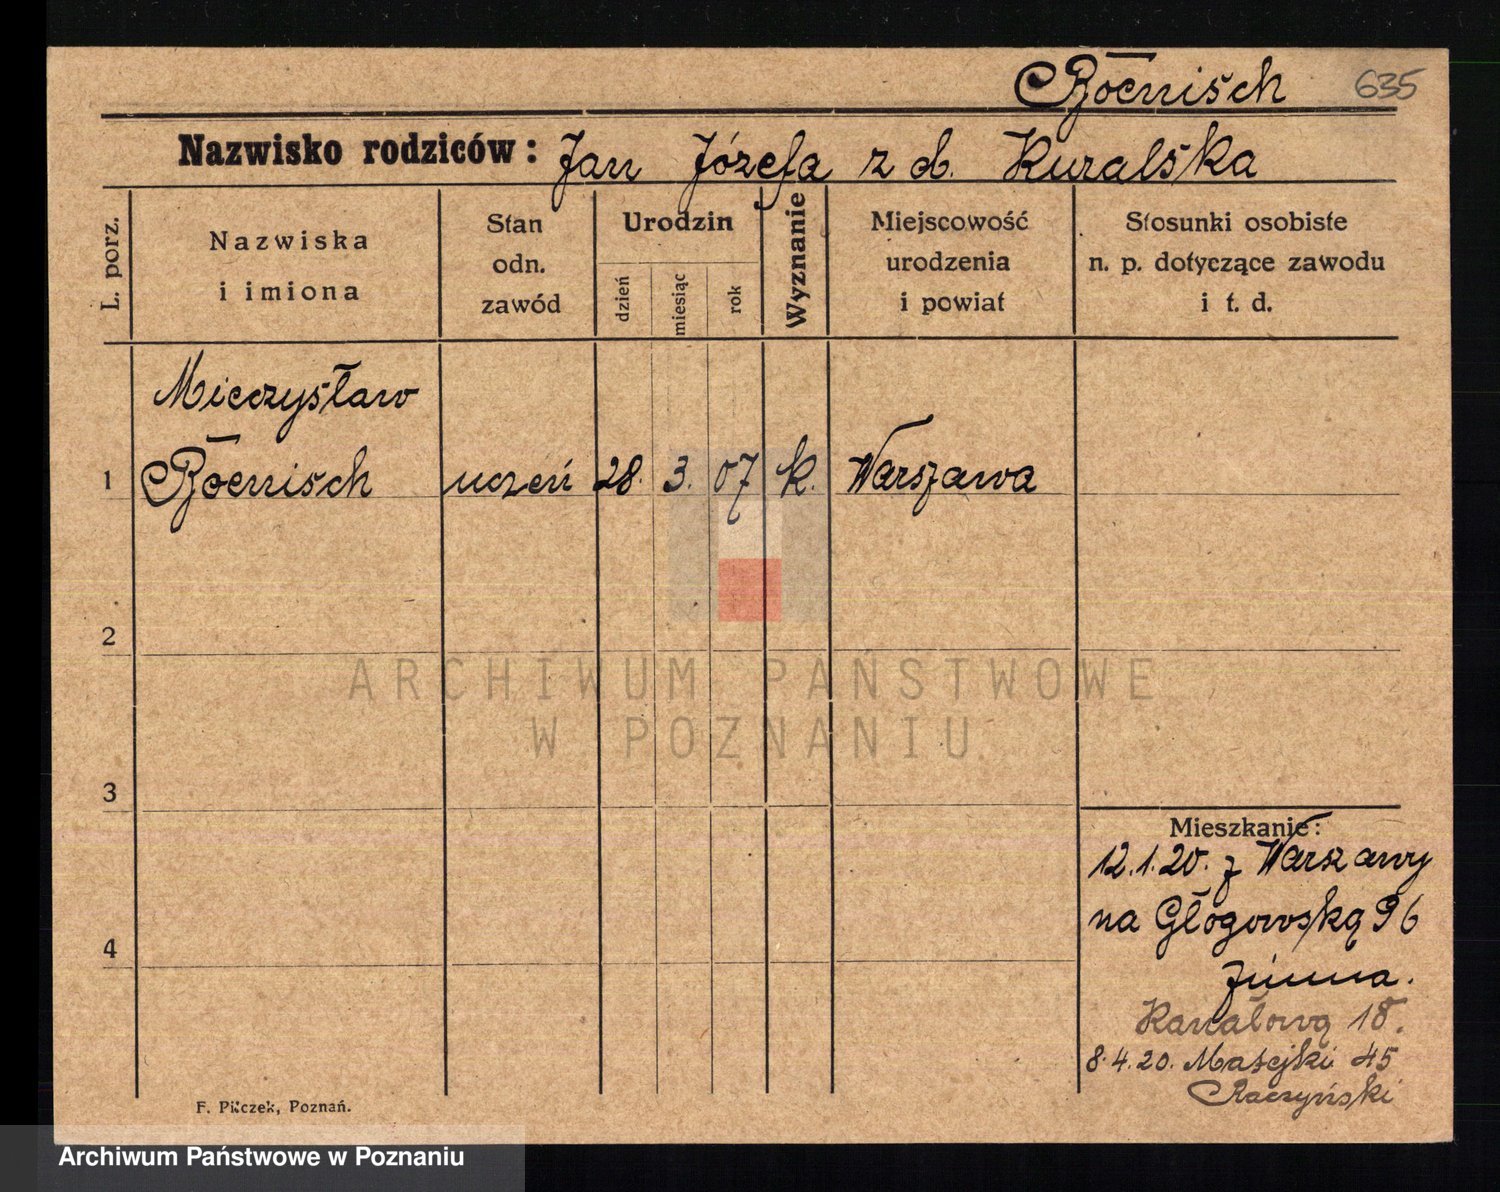 Boenisch 635
Nazwisko rodziców: Jan Józefa z d. Kuralska
L. porz.
Nazwiska
i imiona
Stan
odn.
zawód
Urodzin
dzień
miesiąc
rok
Wyznanie
Miejscowość
urodzenia
i powiat
Stosunki osobiste
n. p. dotyczące zawodu
i t. d.
Mieczysław
1 Boenisch uczeń 28. 3. 07 k. Warszawa
2
ARCHIWUM PAŃSTWOWE
W POZNANIU
3
Mieszkanie:
12.1.20. z Warszawy
na Głogowską 96
4
Kanałową 18.
8.4.20. Matejki 45
Raczyński
F. Pilczek, Poznań.
Archiwum Państwowe w Poznaniu